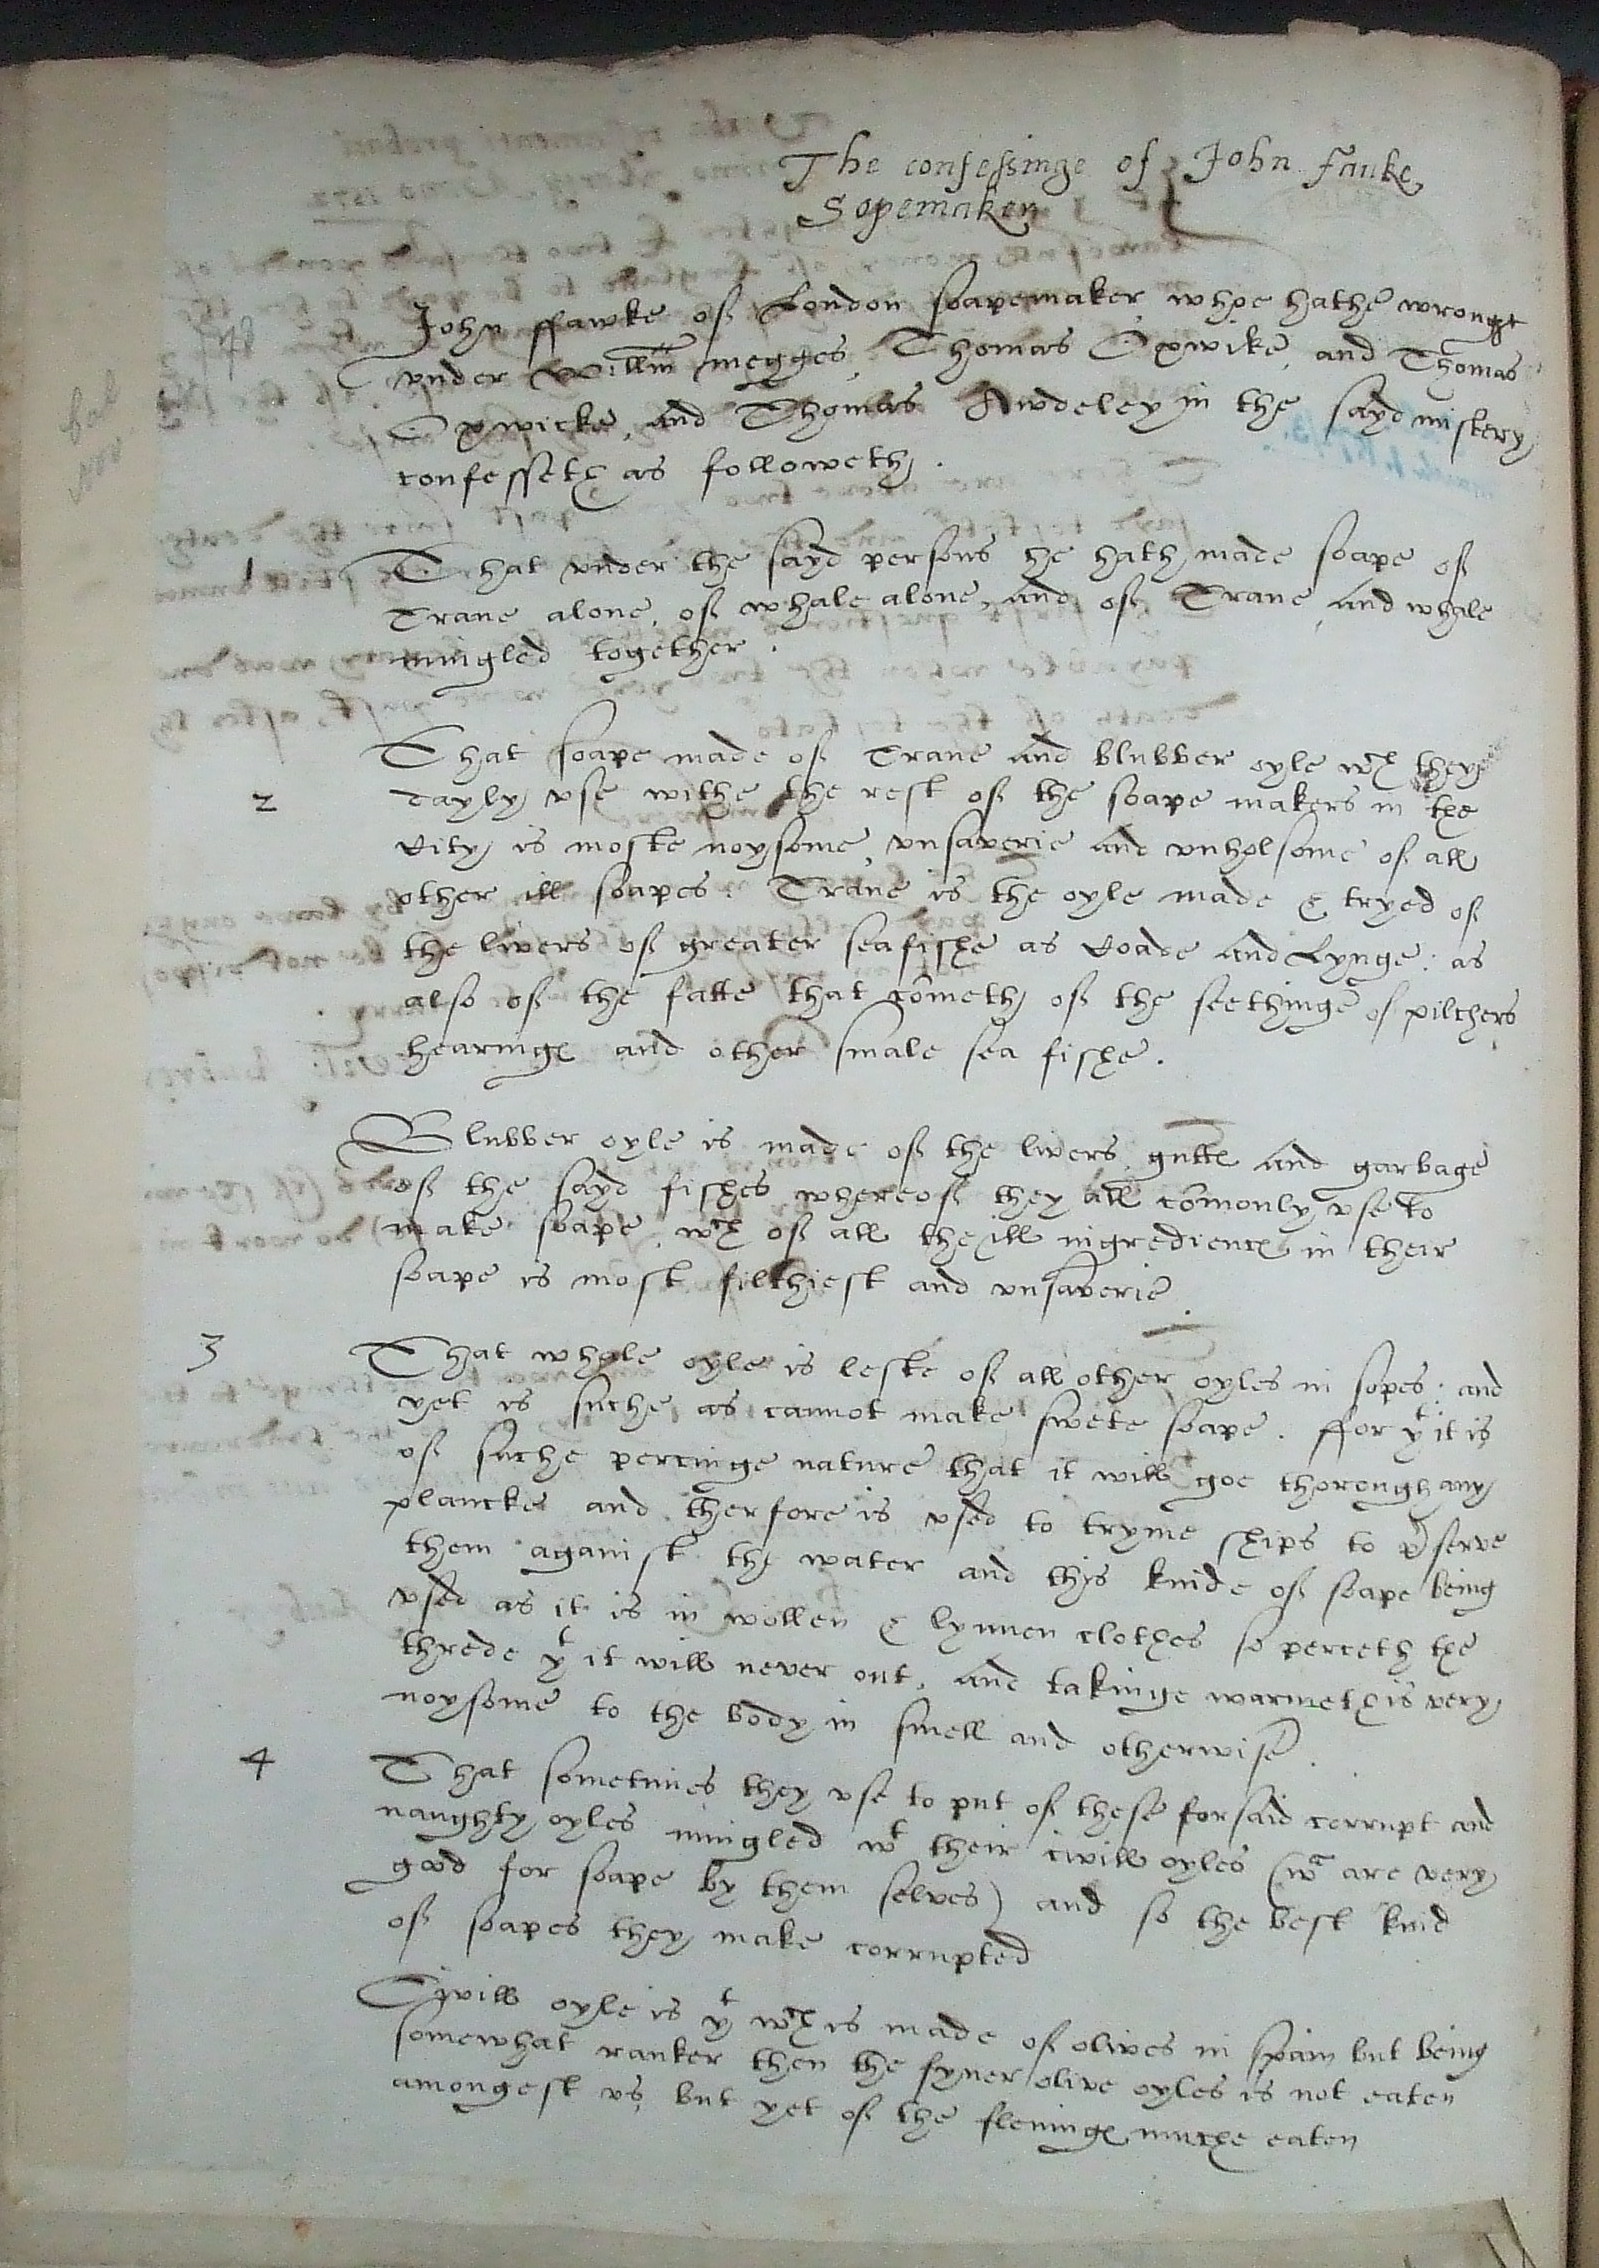 The confessinge of John Fauke
Sopemaker
John ffawke of London soapemaker, whoe hathe wrought
vnder Willm megges, Thomas Oxwike, and Thomas
Oxwicke, and Thomas Awdeley in the sayd mistery
confesseth as followeth.
1 That vnder the sayd persons he hath made soape of
Trane alone, of whale alone, and of Trane, and whale
mingled together.
That soape made of Trane and blubber oyle wch they
2 dayly vse withe the rest of the soape makers in the
City is moste noysome, vnsaverie and vnholsome of all
other ill soapes. Trane is the oyle made & tryed of
the livers of greater seafishe as Coade and Lynge: as
also of the fatte that cometh of the seethinge of pilchers
hearinges and other smale sea fishe.
Blubber oyle is made of the livers, guttes and garbage
of the sayd fishes whereof they all comonly vse to
make soape, wch of all the ill ingredientes in their
soape is most filthiest and vnsaverie.
3 That whale oyle is leste of all other oyles in sopes: and
yet is suche as cannot make swete soape. ffor yt it is
of suche percinge nature that it will goe thorough any
plancke and therfore is vsed to tryme ships to pserve
them against the water and this kinde of soape being
vsed as it is in wollen & lynnen clothes so perceth the
threde yt it will never out, and takinge warmeth is very
noysome to the body in smell and otherwise.
4 That sometimes they vse to put of these forsaid corrupt and
naughty oyles mingled wt their civill oyles (wch are very
good for soape by them selves) and so the best kind
of soapes they make corrupted
Civill oyle is yt wch is made of olives in spain but being
somewhat ranker then the fyner olive oyles is not eaten
amongest vs, but yet of the fleminges muche eaten